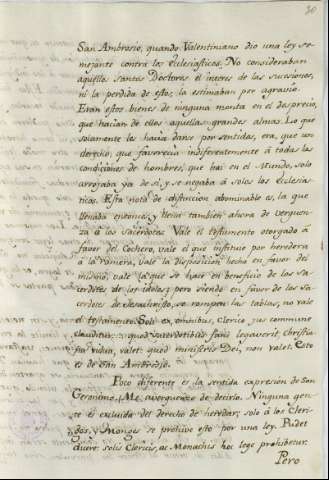 30
San Ambrosio, quando Valentiniano dio una ley se-
mejante contra los Eclesiasticos. No consideraban
aquellos Santos Doctores el interes de las sucesiones,
ni la perdida de esto, la estimaban por agravio.
Eran estos bienes de ninguna monta en el desprecio,
que hacian de ellos aquellas grandes almas. Lo que
solamente les hacia darse por sentidas, era, que un
derecho, que favorecia indiferentemente à todas las
condiciones de hombres, que hai en el Mundo, solo
arrojaba ya de sí, y se negaba à solos los Eclesias-
ticos. Esta nota de distincion abominable es, la que
llenaba entonces, y llena tambien ahora de verguen-
za à los Sacerdotes. Vale el testamento otorgado à
favor del Cochero, vale el que instituie por heredera
à la Ramera, vale la disposicion hecha en favor del
mismo, vale la que se hace en beneficio de los Sa-
cerdotes de los idolos; pero siendo en favor de los Sa-
cerdotes de Jesuchristo, se rompen las tablas, no vale
el testamento. Soli ex omnibus, Clerico jus commune
clauditur: quod Sacerdotibus fani legaverit Christia-
na vidua, valet: quod ministris Dei, non valet. Esto
es de San Ambrosio.
Poco diferente es la sentida expresion de San
Geronimo. Me averguenzo de decirlo. Ninguna gen-
te es excluida del derecho de heredar; solo à los Cleri-
gos, y Monges se prohive esto por una ley. Pudet
dicere: solis Clericis, ac Monachis hac lege prohibetur.
Pero